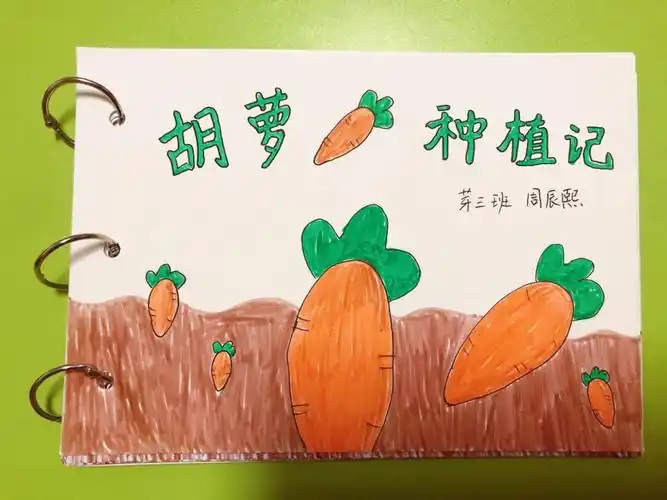 胡萝 种植记
芽三班 周辰熙